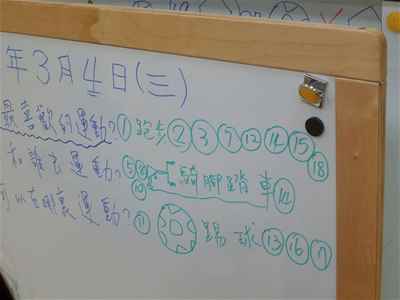 年3月4日(三)
最喜歡的運動? ① 跑步 ② ③ ⑨ ⑫ ⑭ ⑮ ⑱
和誰去運動? ⑤ 騎腳踏車 ⑭
可以在哪裏運動? ⑪ 踢球 ⑬ ⑯ ⑦